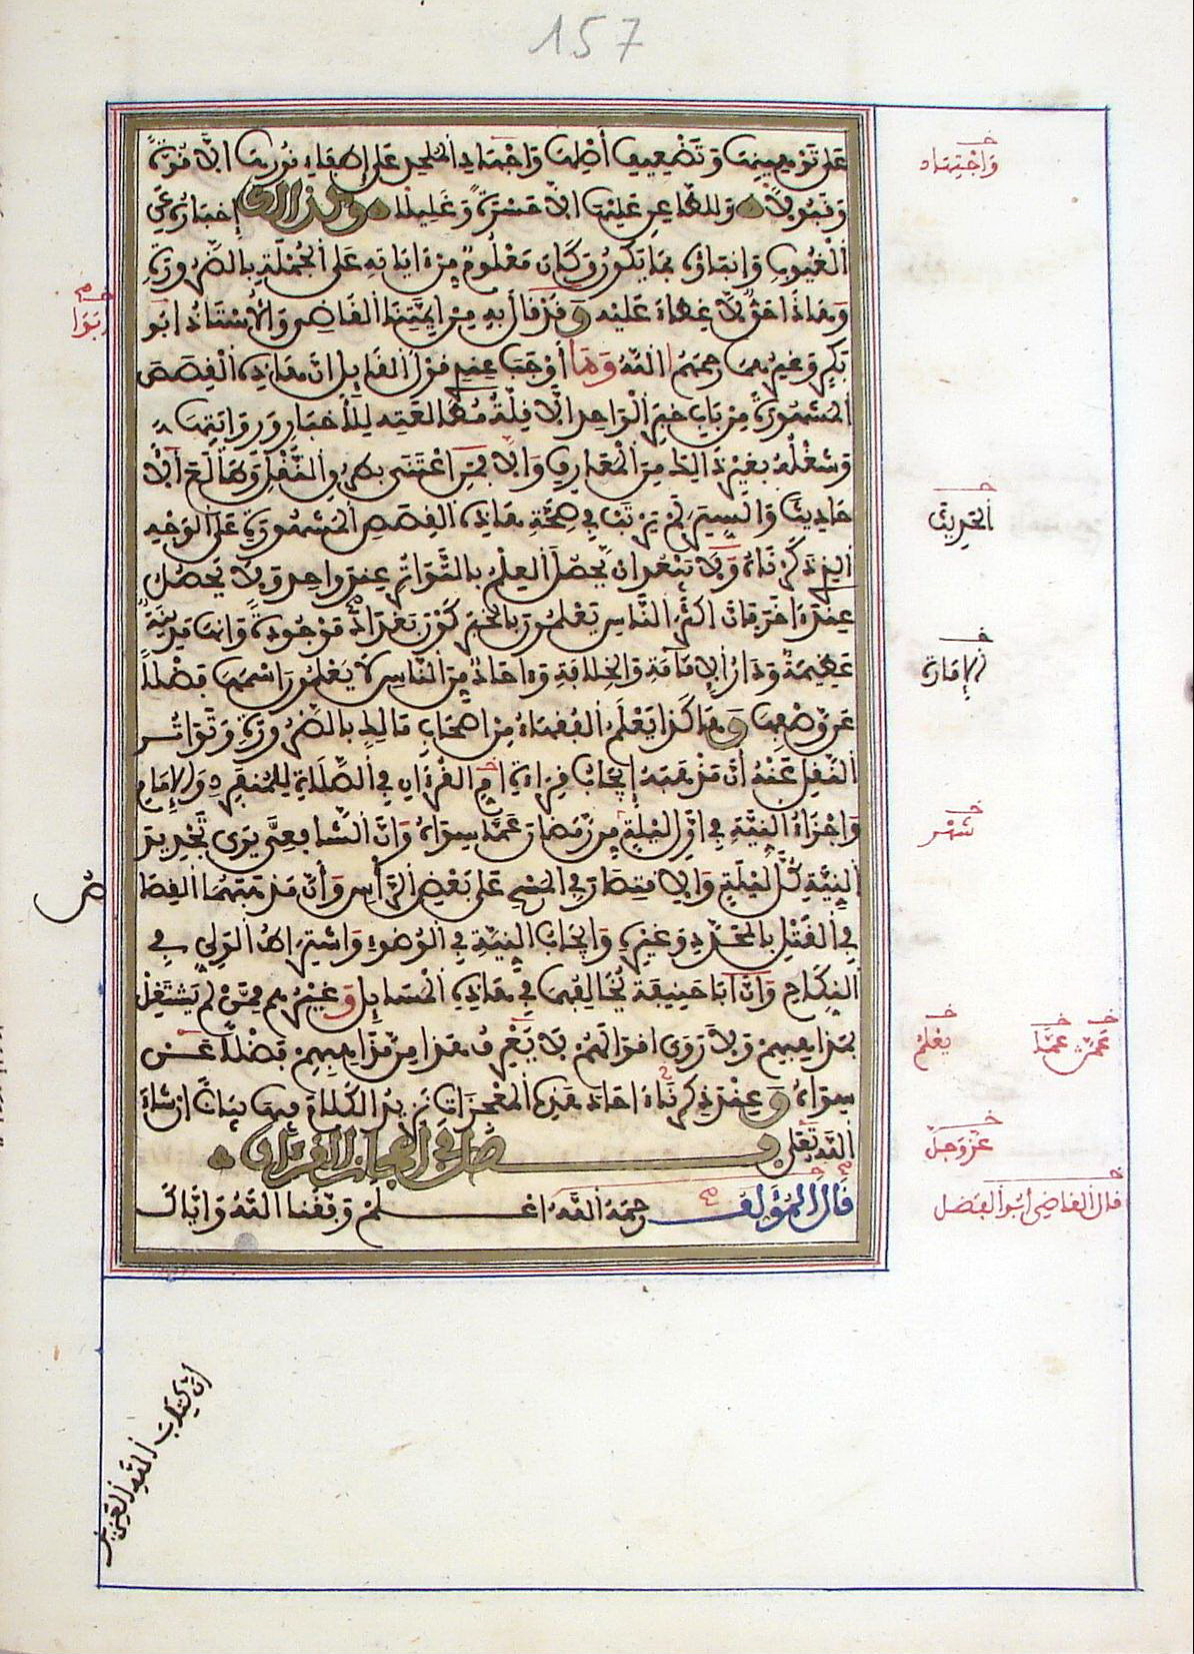 157
على توهينها وتضعيف أصلها واجتهاد الملحد على إطفاء نورها الا قوة
وقبولا وللطاعن عليها الا حسرة وغليلا وكذالك إخباره عن
الغيوب وانباؤه بما يكون وكان معلوم من ءاياته على الجملة بالضرورة
وهاذا حق لا غطاء عليه وقد قال به من ايمتنا القاضي والأستاذ ابو
بكر وغيرهما رحمهم الله وما أوجب عندي قول القايل ان هاذه القصص
المشهورة من باب خبر الواحد الا قلة مطالعته للأخبار وروايتها
وشغله بغير ذالك من المعارف والا فمن اعتنى بطرق النقل وطالع الأ
حاديث والسير لم يرتب في صحة هاذه القصص المشهورة على الوجه
الذي ذكرناه ولا يبعد ان يحصل العلم بالتواتر عند واحد ولا يحصل
عند ءاخر فان اكثر الناس يعلمون بالخبر كون بغداد موجودة وانها مدينة
عظيمة ودار الإمامة والخلافة وءاحاد من الناس لا يعلمون اسمها فضلا
عن وصفها وهاكذا يعلم الفقهاء من اصحاب مالك بالضرورة وتواتر
النقل عنه أن مذهبه إيجاب قراءة ام القرءان في الصلاة للمنفرد والإمام
واجزاء النية في اول ليلة من رمضان عما سواه وان الشافعي يرى تجديد
النية كل ليلة والاقتصار في المسح على بعض الرأس وأن مذهبهما القصا
في القتل بالمحدد وغيره وايجاب النية في الوضوء واشتراط الولي في
النكاح وان ابا حنيفة يخالفهما في هاذه المسايل وغيرهم ممن لم يشتغل
بمذاهبهم ولا روى اقوالهم لا يعرف هذا من مذاهبهم فضلا عن
سواه وعند ذكرنا ءاحاد هذه المعجزات نزيد الكلام فيها بيانا ان شاء
الله تعلى فصل في اعجاز القرءان
قال المؤلف رحمه الله اعلم وفقنا الله واياك
واجتهاد
ابوا
الحديث
الإمارة
شهر
ص
يعلم
عمن عما
عز وجل
قال القاضي أبو الفضل
أن كتاب الله العزيز